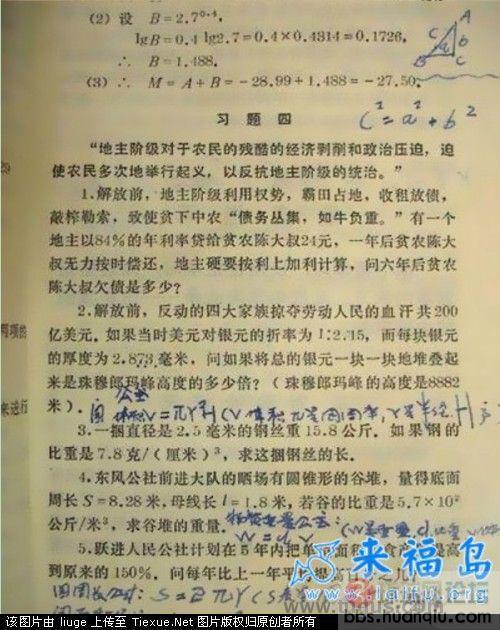 (2) 设 B=2.7⁰·⁴,
lgB=0.4 lg2.7=0.4×0.4314=0.1726,
∴ B=1.488.
(3) ∴ M=A+B=-28.99+1.488=-27.50.
A
b
B C
c²=a²+b²
习题四
“地主阶级对于农民的残酷的经济剥削和政治压迫，迫
使农民多次地举行起义，以反抗地主阶级的统治。”
1.解放前，地主阶级利用权势，霸田占地，收租放债，
敲榨勒索，致使贫下中农“债务丛集，如牛负重。”有一个
地主以84%的年利率贷给贫农陈大叔24元，一年后贫农陈大
叔无力按时偿还，地主硬要按利上加利计算，问六年后贫农
陈大叔欠债是多少？
2.解放前，反动的四大家族掠夺劳动人民的血汗共200
亿美元．如果当时美元对银元的折率为1:2.15，而每块银元
的厚度为2.873毫米，问如果将总的银元一块一块地堆叠起
来是珠穆郎玛峰高度的多少倍？(珠穆郎玛峰的高度是8882
米)．
3.一捆直径是2.5毫米的钢丝重15.8公斤．如果钢的
比重是7.8克/(厘米)³，求这捆钢丝的长．
4.东风公社前进大队的晒场有圆锥形的谷堆，量得底面
周长S=8.28米，母线长l=1.8米，若谷的比重是5.7×10²
公斤/米³，求谷堆的重量．
5.跃进人民公社计划在5年内把单
到原来的150%，问每年比上一年平
两项的
来进行
来福岛
www.laifu.org
bbs.huanqiu.com
该图片由 liuge 上传至 Tiexue.Net 图片版权归原创者所有